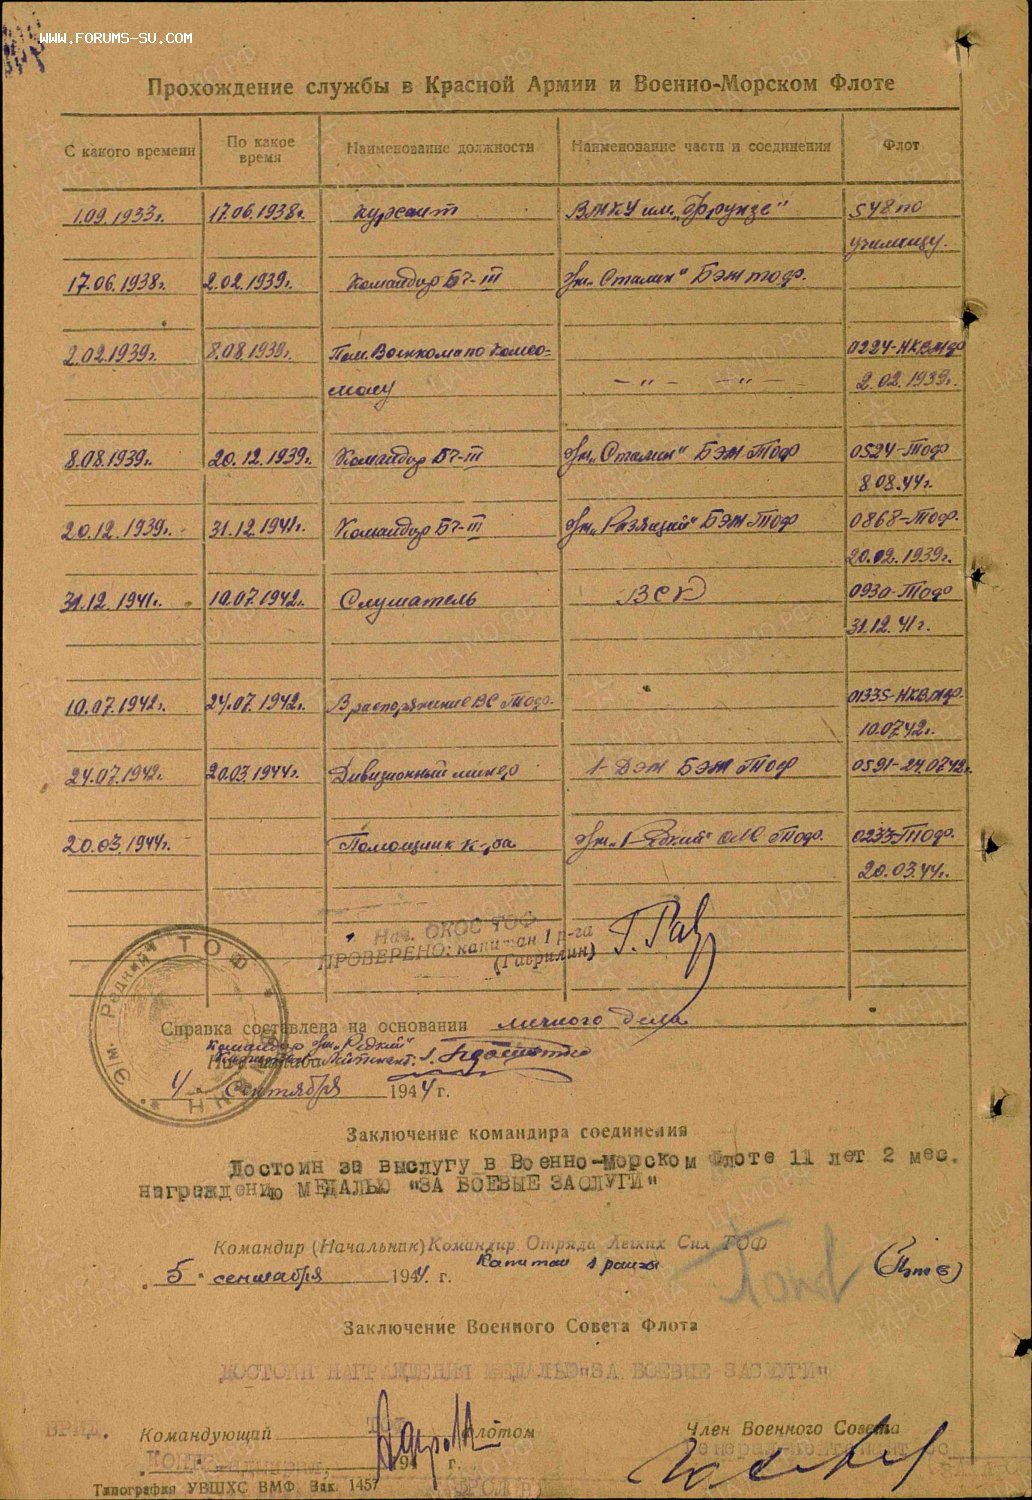 WWW.FORUMS-SU.COM
Прохождение службы в Красной Армии и Военно-Морском Флоте
С какого времени По какое время Наименование должности Наименование части и соединения Флот
1.09.1933г. 17.06.1938г. Курсант ВМКУ им. „Фрунзе"
училищу.
17.06.1938г. 2.02.1939г. Командир БЧ-III Эм. „Сталин" БЭМ тоф.
2.02.1939г. 8.08.1939г. Пом. Военкома по Комсо- 0224-НКВМФ
молу —"— —"— 2.02.1939г.
8.08.1939г. 20.12.1939г. Командир БЧ-III Эм. „Сталин" БЭМ ТОФ 0524-ТОФ
8.08.44г.
20.12.1939г. 31.12.1941г. Командир БЧ-III Эм. „Разящий" БЭМ ТОФ 0868-ТОФ.
20.02.1939г.
31.12.1941г. 10.07.1942г. Слушатель 0930-ТОФ
31.12.41г.
10.07.1942г. 24.07.1942г. В распоряжение ВС ТОФ. 01335-НКВМФ.
10.07.42г.
24.07.1942г. 20.03.1944г. Дивизионный минер 1 ДЭМ БЭМ ТОФ 0591-24.07.42г.
20.03.1944г. Помощник к-ра Эм. „Редкий" ОЛС ТОФ. 0233-ТОФ.
20.03.44г.
Нач. ОКОС ТОФ
ПРОВЕРЕНО: капитан 1 р-га
(Гаврилин)
ТОФ
Эм. Редкий
Справка составлена на основании личного дела
Командир Эм. „Редкий"
Нач. штаба
4 Сентября 1944 г.
Заключение командира соединения
Достоин за выслугу в Военно-морском Флоте 11 лет 2 мес.
награждению МЕДАЛЬЮ "ЗА БОЕВЫЕ ЗАСЛУГИ"
Командир (Начальник) Командир Отряда Легких Сил ТОФ
Капитан 1 ранга
5 сентября 1944 г.
Заключение Военного Совета Флота
ДОСТОИН НАГРАЖДЕНИЯ МЕДАЛЬЮ "ЗА БОЕВЫЕ ЗАСЛУГИ"
ВРИД. Командующий Флотом Член Военного Совета
194 г.
Типография УВШХС ВМФ. Зак. 1457